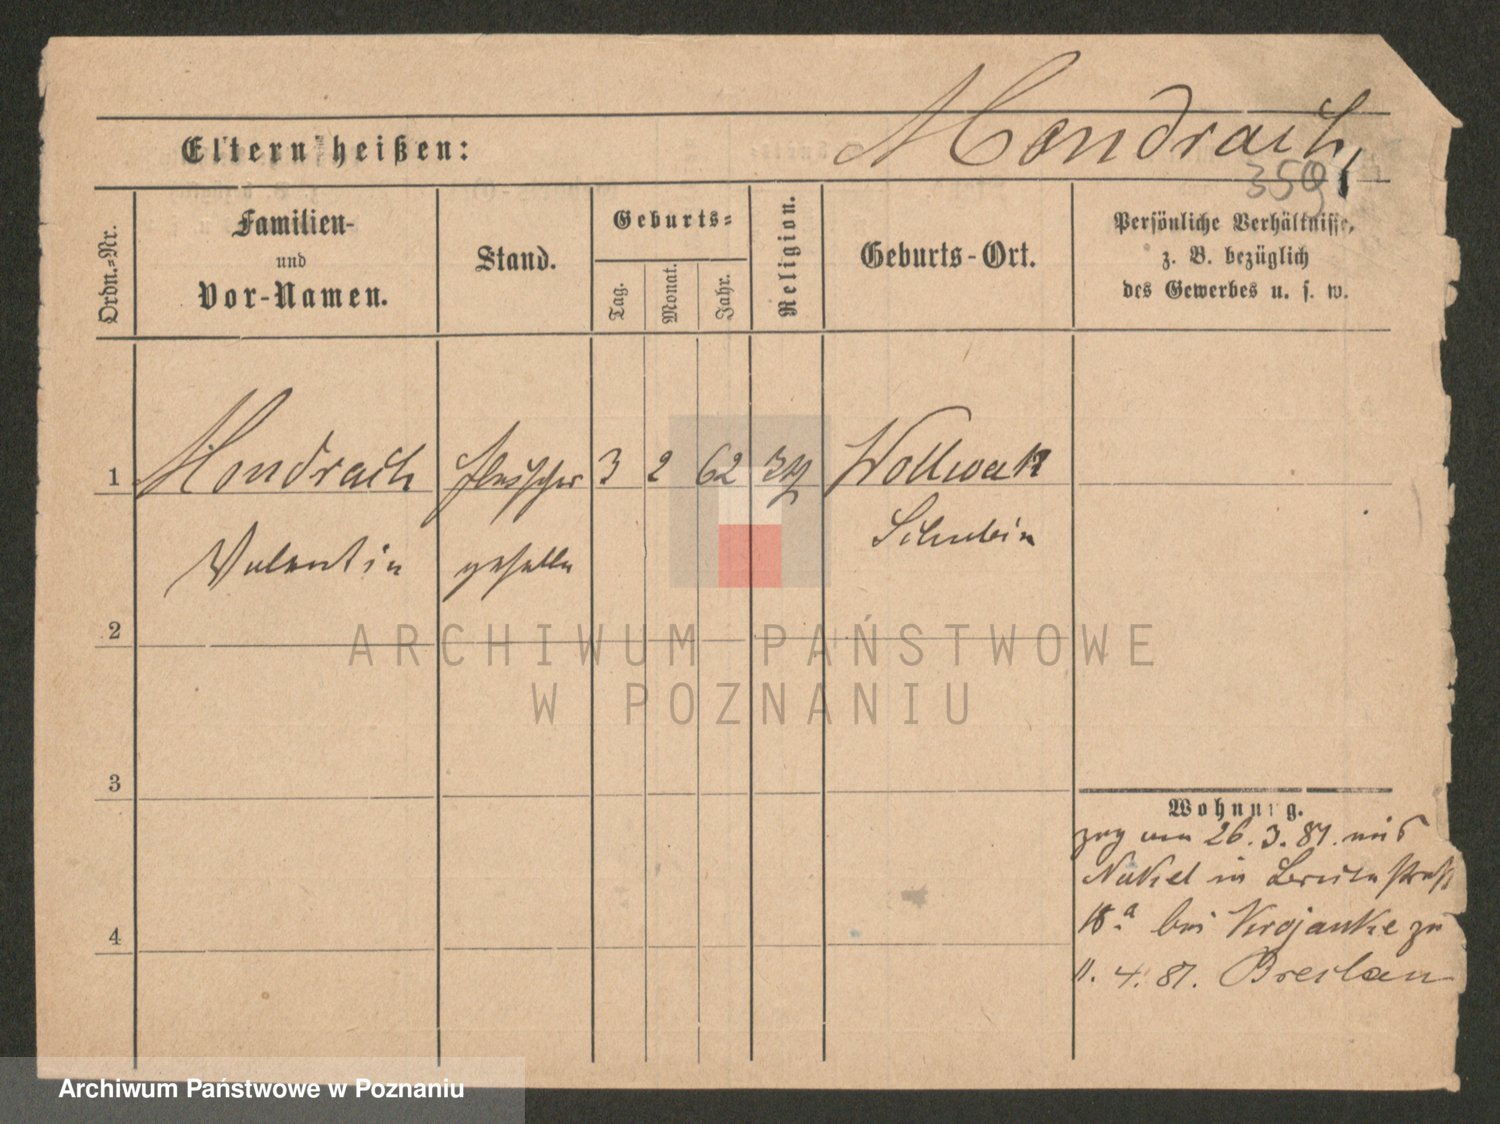 Mondrach,
Eltern heißen:
359
Ordn.=Nr.
Familien-
und
Vor-Namen.
Stand.
Geburts=
Tag.
Monat.
Jahr.
Religion.
Geburts-Ort.
Persönliche Verhältnisse,
z. B. bezüglich
des Gewerbes u. s. w.
1 Mondrach Fleischer 3 2 62
Valentin geselle Schubin
2
ARCHIWUM PAŃSTWOWE
W POZNANIU
3
Wohnung.
zog am 26. 3. 87. aus
Nakel in
18.a bei Krojanke zu
11. 4. 87. Breslau
4
Archiwum Państwowe w Poznaniu